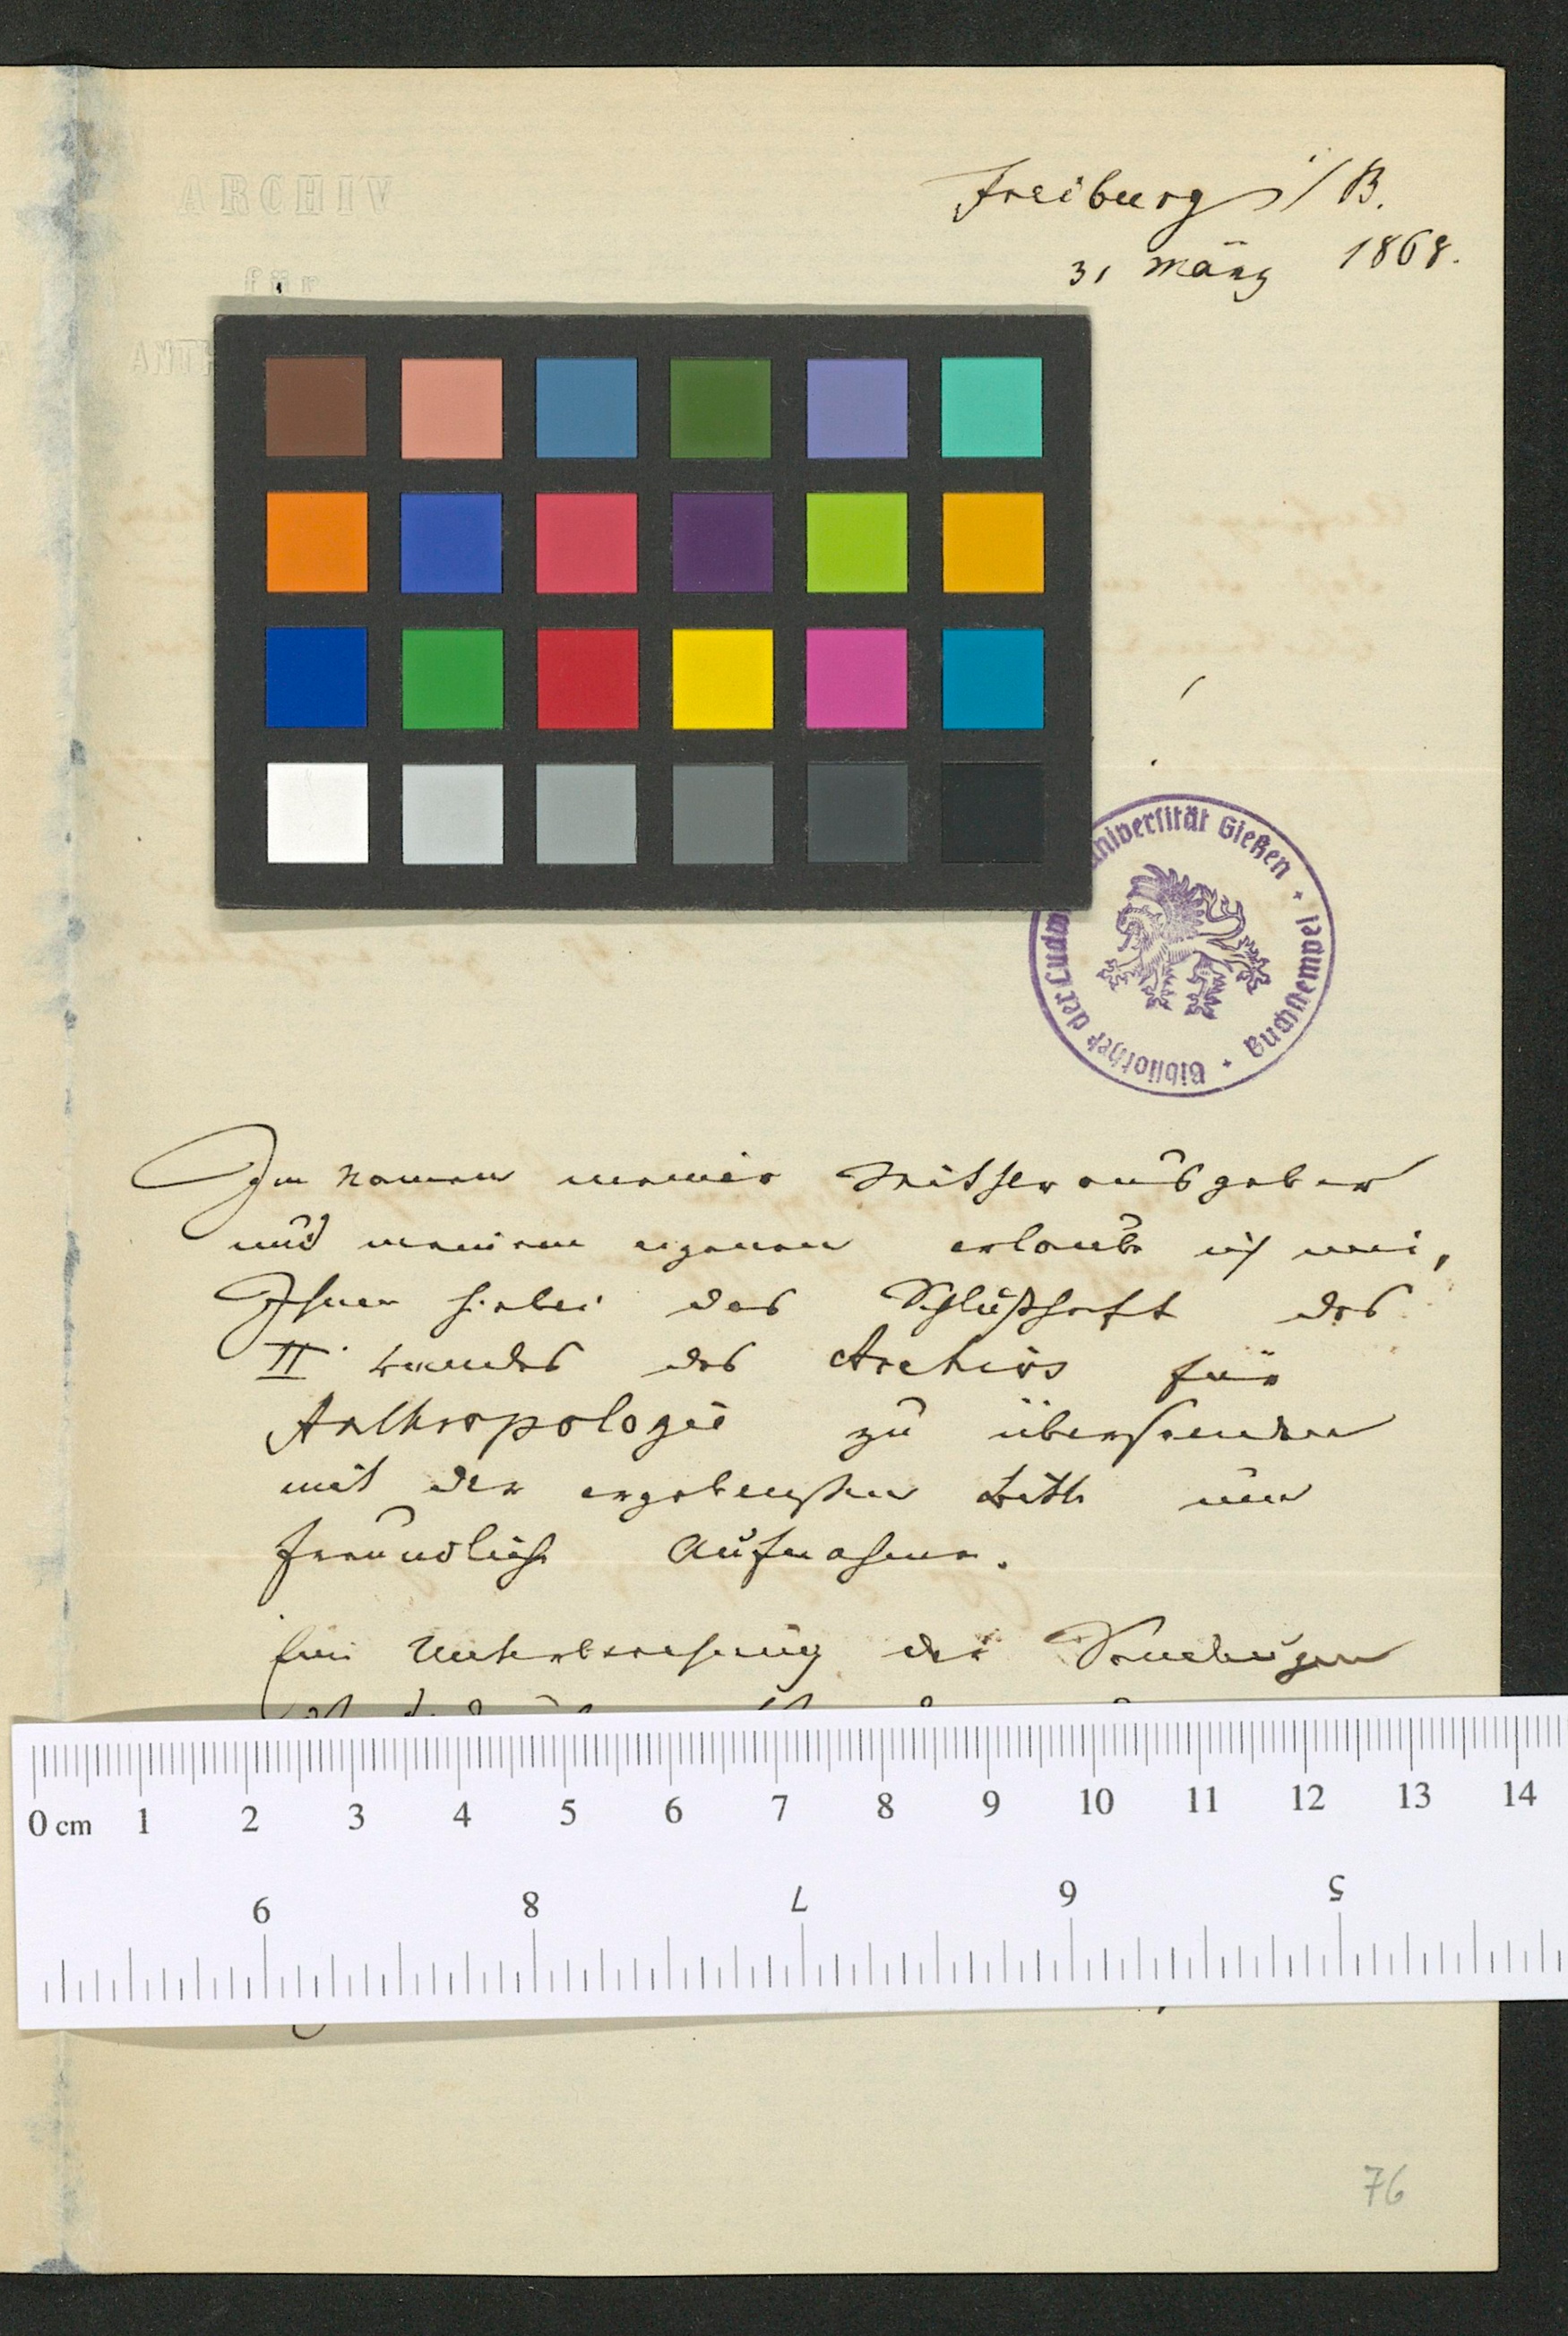 ARCHIV
für
ANTH
Freiburg i/B.
31 März 1868.
Bibliothek der Ludw Universität Gießen + Buchstempel +
Im Namen meiner Mitherausgeber
und meinem eigenen erlaube ich mir,
Ihnen hiebei das Schlußheft des
II. Bandes des Archivs für
Anthropologie zu übersenden
mit der ergebensten Bitte um
freundliche Aufnahme.
Eine Unterbrechung der Sendungen
0 cm 1 2 3 4 5 6 7 8 9 10 11 12 13 14
9 8 7 6 5
76